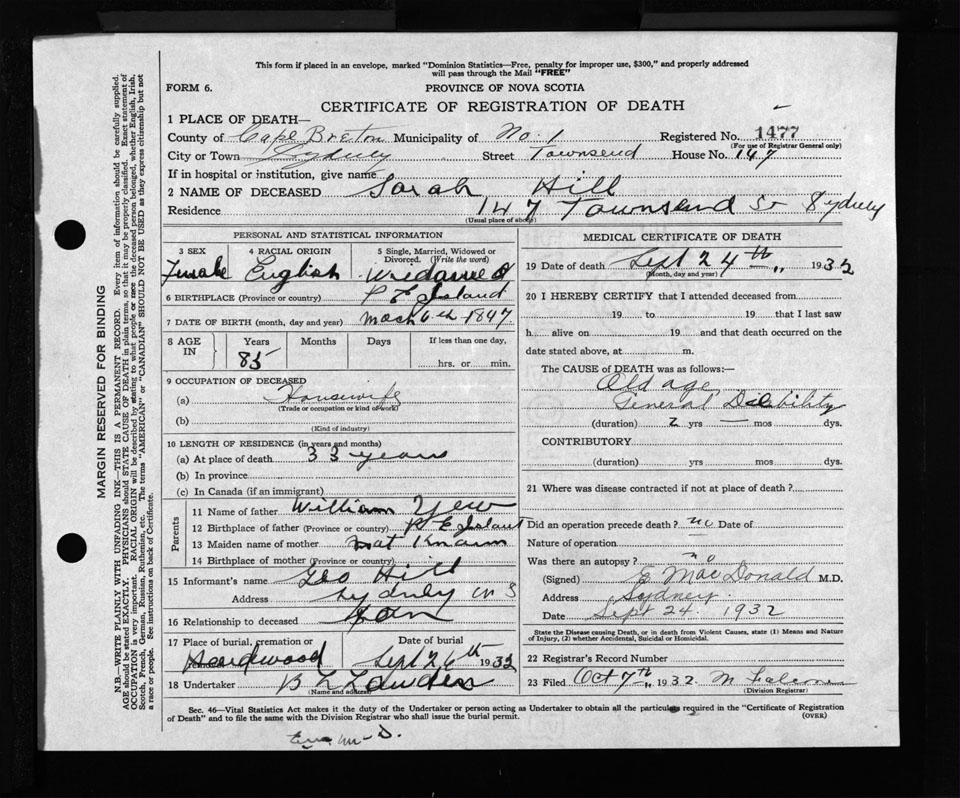 This form if placed in an envelope, marked "Dominion Statistics—Free, penalty for improper use, $300," and properly addressed
will pass through the Mail "FREE"
FORM 6.
PROVINCE OF NOVA SCOTIA
CERTIFICATE OF REGISTRATION OF DEATH
1 PLACE OF DEATH—
County of Cape Breton Municipality of No. 1 Registered No. 1477
(For use of Registrar General only)
City or Town Sydney Street Townsend House No. 147
If in hospital or institution, give name
2 NAME OF DECEASED Sarah Hill
Residence 147 Townsend St Sydney
(Usual place of abode)
PERSONAL AND STATISTICAL INFORMATION
3 SEX 4 RACIAL ORIGIN 5 Single, Married, Widowed or
Divorced. (Write the word)
Female English
6 BIRTHPLACE (Province or country) P E Island
7 DATE OF BIRTH (month, day and year) 6th 1847
8 AGE IN Years Months Days If less than one day,
85 hrs. or min.
9 OCCUPATION OF DECEASED
(a) Housewife
(Trade or occupation or kind of work)
(b)
(Kind of industry)
10 LENGTH OF RESIDENCE (in years and months)
(a) At place of death 33 years
(b) In province
(c) In Canada (if an immigrant)
Parents
11 Name of father William Yew
12 Birthplace of father (Province or country) P E Island
13 Maiden name of mother not Known
14 Birthplace of mother (Province or country)
15 Informant's name Geo Hill
Address Sydney N S
16 Relationship to deceased Son
17 Place of burial, cremation or Date of burial
Hardwood Sept 26th 1932
18 Undertaker B L
(Name and address)
MEDICAL CERTIFICATE OF DEATH
19 Date of death Sept 24th " 1932
(Month, day and year)
20 I HEREBY CERTIFY that I attended deceased from
19 to 19 that I last saw
h alive on 19 and that death occurred on the
date stated above, at m.
The CAUSE OF DEATH was as follows:—
Old age
General Debility
(duration) 2 yrs — mos dys.
CONTRIBUTORY
(duration) yrs mos dys.
21 Where was disease contracted if not at place of death?
Did an operation precede death? no Date of
Nature of operation
Was there an autopsy? no
(Signed) E MacDonald M.D.
Address Sydney.
Date Sept 24. 1932
State the Disease causing Death, or in death from Violent Causes, state (1) Means and Nature
of Injury, (2) whether Accidental, Suicidal or Homicidal.
22 Registrar's Record Number
23 Filed Oct 7th " 1932
(Division Registrar)
Sec. 46—Vital Statistics Act makes it the duty of the Undertaker or person acting as Undertaker to obtain all the particulars required in the "Certificate of Registration
of Death" and to file the same with the Division Registrar who shall issue the burial permit.
(OVER)
MARGIN RESERVED FOR BINDING
N.B.—WRITE PLAINLY WITH UNFADING INK—THIS IS A PERMANENT RECORD. Every item of information should be carefully supplied.
AGE should be stated EXACTLY. PHYSICIANS should STATE CAUSE OF DEATH in plain terms, so that it may be properly classified. Exact statement of
OCCUPATION is very important. RACIAL ORIGIN will be described by stating to what people or race the deceased person belonged, whether English, Irish,
Scotch, French, German, Russian, Ruthenian, etc. The terms "AMERICAN" or "CANADIAN" SHOULD NOT BE USED as they express citizenship but not
a race or people. See instructions on back of Certificate.